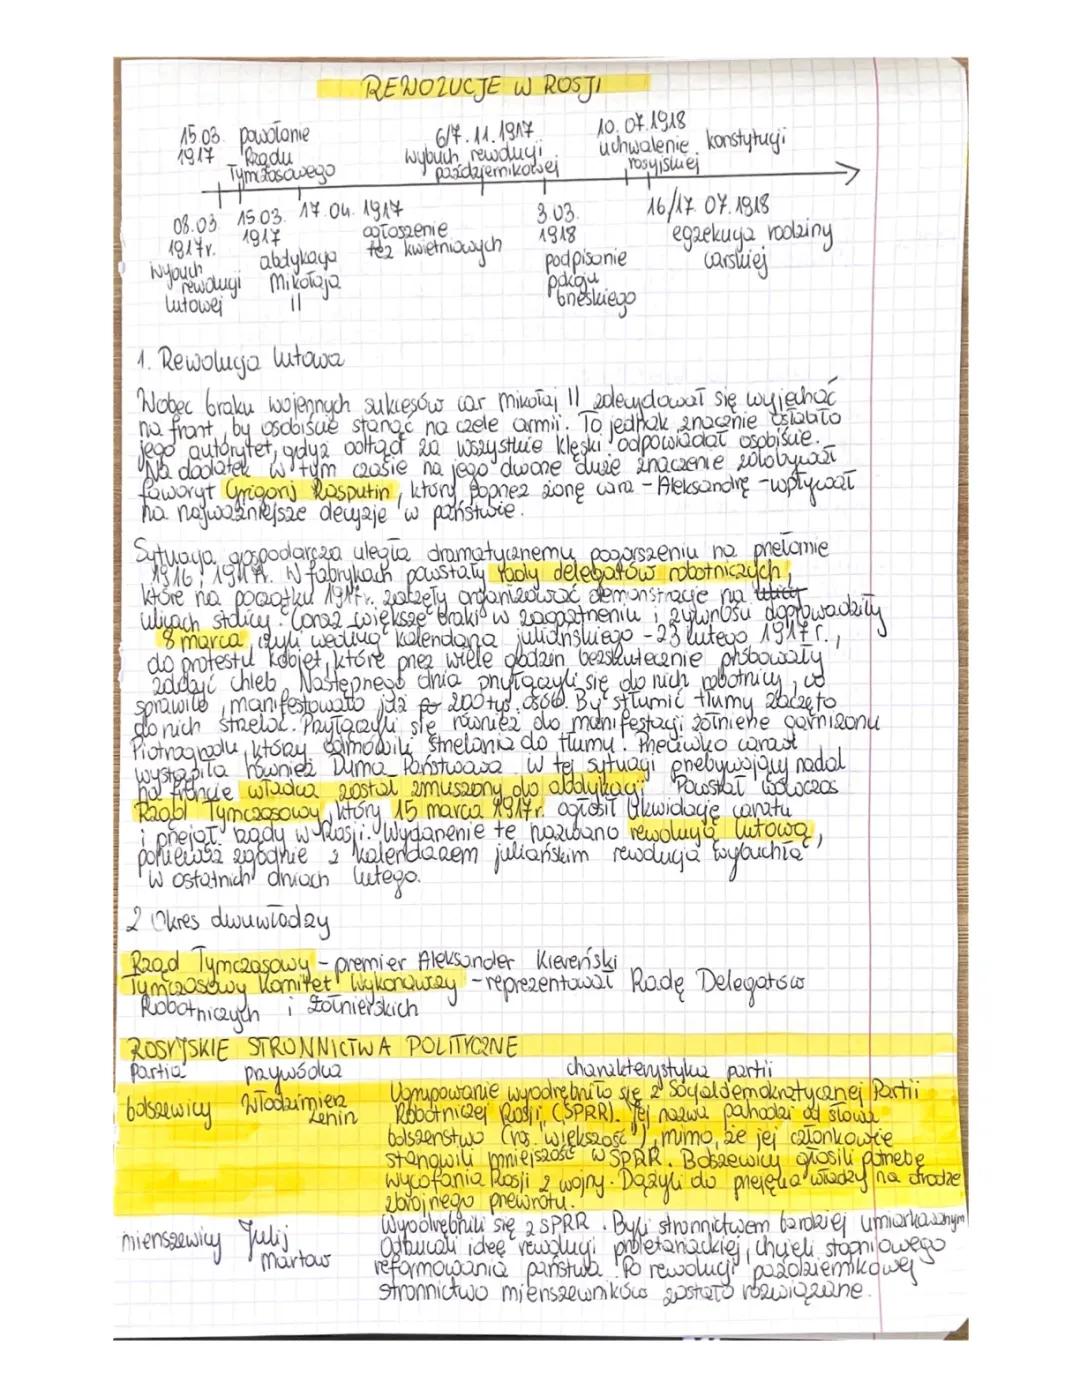 REWOLUCJE W ROSJI
15.03. 1917 powołanie Rządu Tymczasowego
6/7.11.1917 wybuch rewolucji październikowej
10.07.1918 uchwalenie konstytucji rosyjskiej
08.03 1917r. wybuch rewolucji lutowej
15.03. 1917 abdykacja Mikołaja II
17.04. 1917 ogłoszenie tez kwietniowych
3.03. 1918 podpisanie pokoju brzeskiego
16/17.07.1918 egzekucja rodziny carskiej
1. Rewolucja lutowa
Wobec braku wojennych sukcesów car Mikołaj II zdecydował się wyjechać
na front, by osobiście stanąć na czele armii. To jednak znacznie osłabiło
jego autorytet, gdyż odtąd za wszystkie klęski odpowiadał osobiście.
Na dodatek w tym czasie na jego dworze duże znaczenie zdobywał
faworyt Grigorij Rasputin, który poprzez żonę cara - Aleksandrę - wpływał
na najważniejsze decyzje w państwie.
Sytuacja gospodarcza uległa dramatycznemu pogorszeniu na przełomie
1916 i 1917r. W fabrykach powstały rady delegatów robotniczych,
które na początku 1917r. zaczęły organizować demonstracje na
ulicach stolicy. Coraz większe braki w zaopatrzeniu i żywności doprowadziły
8 marca, czyli według kalendarza juliańskiego - 23 lutego 1917r.,
do protestu kobiet, które przez wiele godzin bezskutecznie próbowały
zdobyć chleb. Następnego dnia przyłączyli się do nich robotnicy, co
sprawiło, manifestowało już 200 tys. osób. By stłumić tłumy zaczęto
do nich strzelać. Przyłączyli się również do manifestacji żołnierze garnizonu
Piotrogrodu, którzy odmówili strzelania do tłumu. Przeciwko carowi
wystąpiła również Duma Państwowa. W tej sytuacji przebywający nadal
na froncie władca został zmuszony do abdykacji. Powstał wówczas
Rząd Tymczasowy, który 15 marca 1917r. ogłosił likwidację caratu
i przejął rządy w Rosji. Wydarzenie te nazwano rewolucją lutową,
ponieważ zgodnie z kalendarzem juliańskim rewolucja wybuchła
w ostatnich dniach lutego.
2 Okres dwuwładzy
Rząd Tymczasowy - premier Aleksander Kiereński
Tymczasowy Komitet Wykonawczy - reprezentował Radę Delegatów
Robotniczych i Żołnierskich
ROSYJSKIE STRONNICTWA POLITYCZNE
Partia przywódca charakterystyka partii
bolszewicy Włodzimierz Lenin Ugrupowanie wyodrębniło się z Socjaldemokratycznej Partii
Robotniczej Rosji (SPRR). Jej nazwa pochodzi od słowa
bolszenstwo (ros. "większość"), mimo, że jej członkowie
stanowili mniejszość w SPRR. Bolszewicy głosili potrzebę
wycofania Rosji z wojny. Dążyli do przejęcia władzy na drodze
zbrojnego przewrotu.
mienszewicy Julij Martow Wyodrębnili się z SPRR. Byli stronnictwem bardziej umiarkowanym
Odrzucali ideę rewolucji proletariackiej, chcieli stopniowego
reformowania państwa. Po rewolucji październikowej
stronnictwo mienszewików zostało rozwiązane.